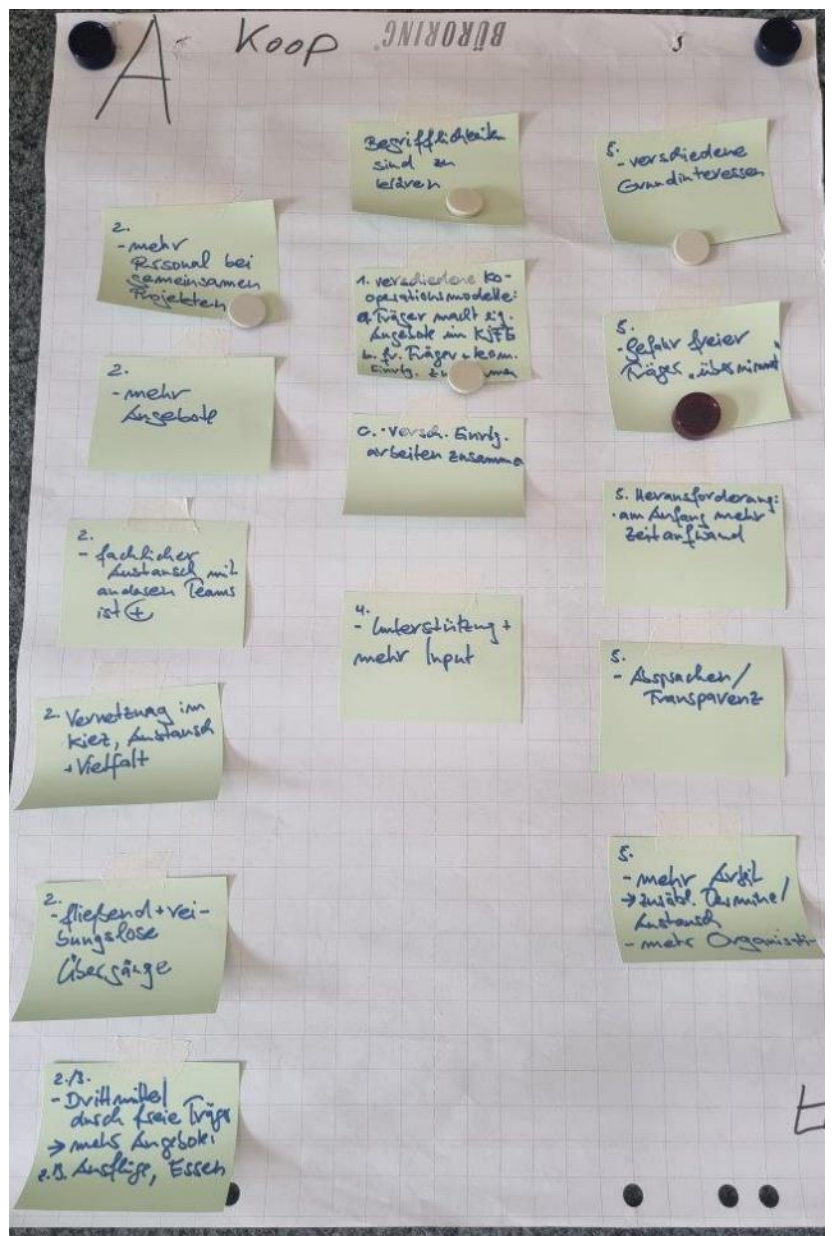 A Koop
BÜRORING
5
2.
- mehr
Personal bei
gemeinsamen
Projekten
2.
- mehr
Angebote
2.
- fachlicher
Austausch mit
anderen Teams
ist +
2. Vernetzung im
Kiez, Austausch
+ Vielfalt
2.
- fließend + rei-
bungslose
Übergänge
2./3.
- Drittmittel
durch freie Träger
→ mehr Angebote
z.B. Ausflüge, Essen
Begrifflichkeiten
sind zu
klären
1. verschiedene Ko-
operationsmodelle:
a. Träger macht eig.
Angebote im KJFE
b. fr. Träger + kom.
Einrtg.
c. versch. Einrtg.
arbeiten zusamme
4.
- Unterstützung +
mehr Input
5.
- verschiedene
Grundinteressen
5.
- Gefahr freier
Träger „übernimmt"
5. Herausforderung:
- am Anfang mehr
Zeitaufwand
5.
- Absprachen/
Transparenz
5.
- mehr Arbeit
→ zusätzl. Termine/
Austausch
- mehr Organisati-